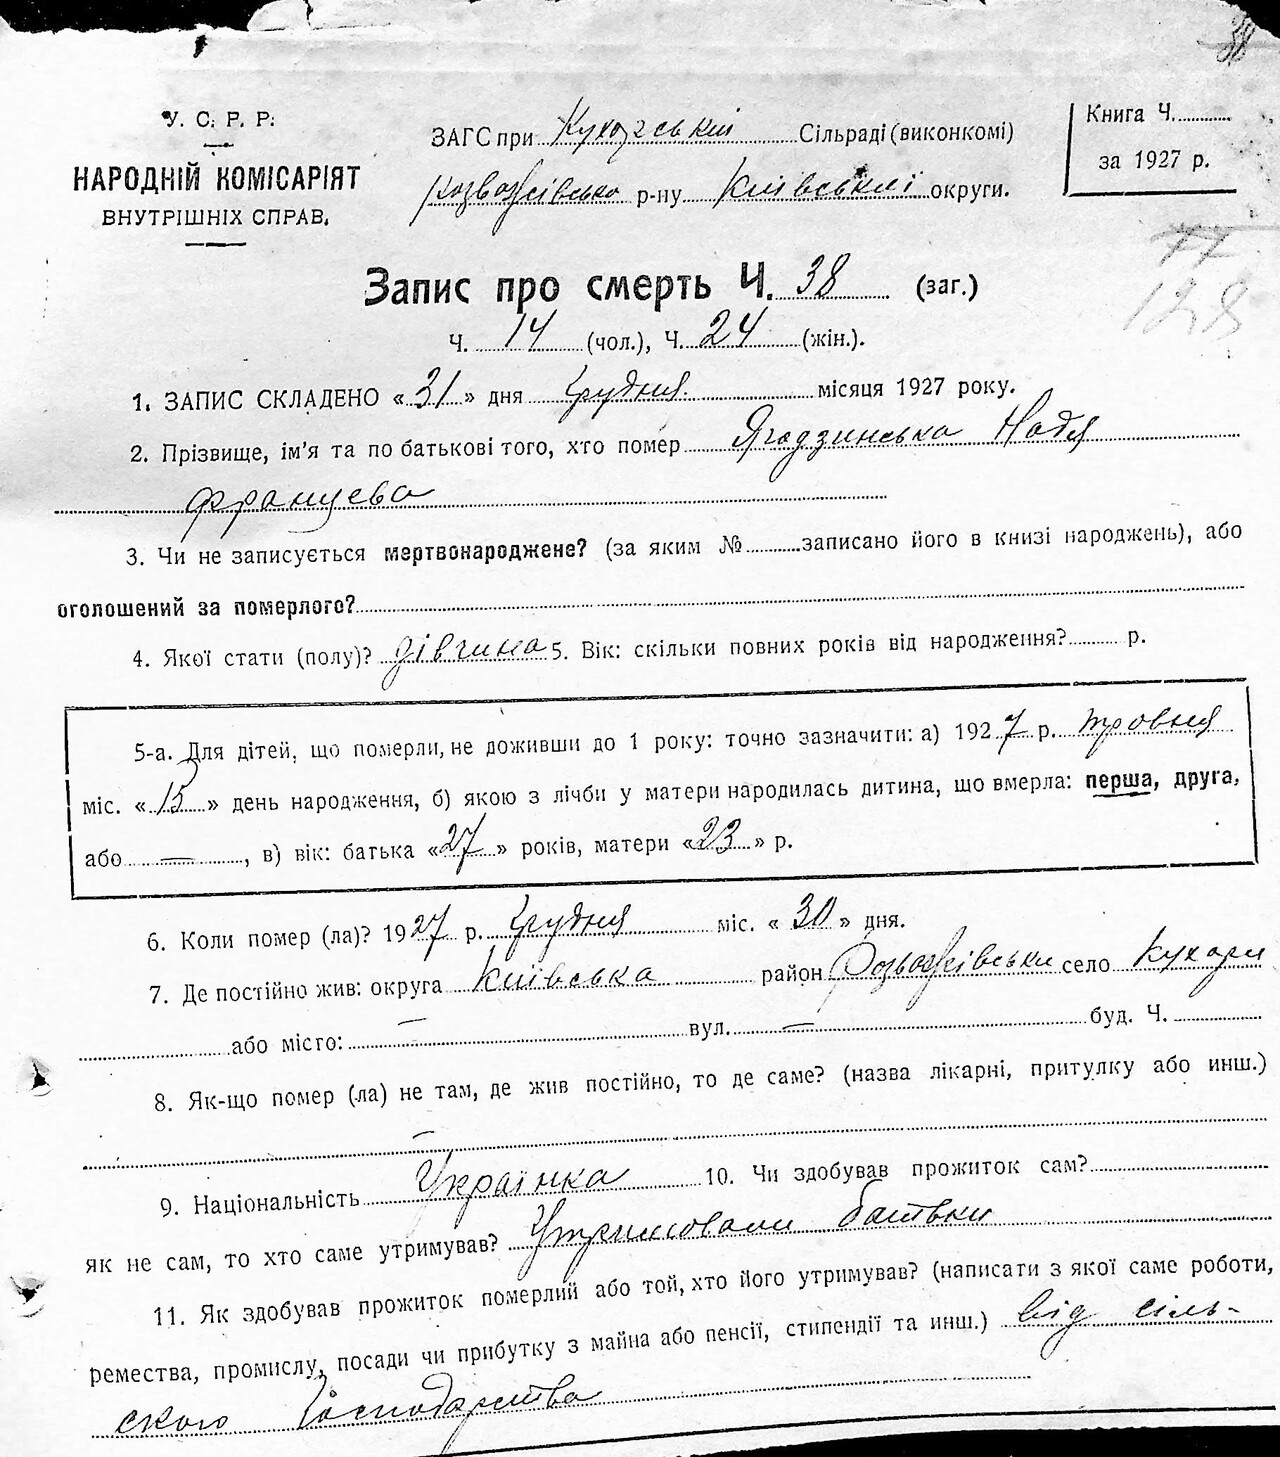 38
У. С. Р. Р.
НАРОДНІЙ КОМІСАРІЯТ
ВНУТРІШНІХ СПРАВ.
ЗАГС при Кухарській Сільраді (виконкомі)
Розважівсько р-ну Київської округи.
Книга Ч.
за 1927 р.
77
128
Запис про смерть Ч. 38 (заг.)
Ч. 14 (чол.), Ч. 24 (жін.).
1. ЗАПИС СКЛАДЕНО « 31 » дня Грудня місяця 1927 року.
2. Прізвище, ім'я та по батькові того, хто помер Ягодзинська Надя
Францева
3. Чи не записується мертвонароджене? (за яким № записано його в книзі народжень), або
оголошений за померлого?
4. Якої стати (полу)? дівчина 5. Вік: скільки повних років від народження? р.
5-а. Для дітей, що померли, не доживши до 1 року: точно зазначити: а) 1927 р. травня
міс. « 15 » день народження, б) якою з лічби у матери народилась дитина, що вмерла: перша, друга,
або —, в) вік: батька « 27 » років, матери « 23 » р.
6. Коли помер (ла)? 1927 р. Грудня міс. « 30 » дня.
7. Де постійно жив: округа Київська район Розважівськи село Кухари
або місто: — вул. — буд. Ч.
8. Як-що помер (ла) не там, де жив постійно, то де саме? (назва лікарні, притулку або инш.)
—
9. Національність Українка 10. Чи здобував прожиток сам?
як не сам, то хто саме утримував? Утримовали батьки
11. Як здобував прожиток померлий або той, хто його утримував? (написати з якої саме роботи,
ремества, промислу, посади чи прибутку з майна або пенсії, стипендії та инш.) від сіль-
ского господарства